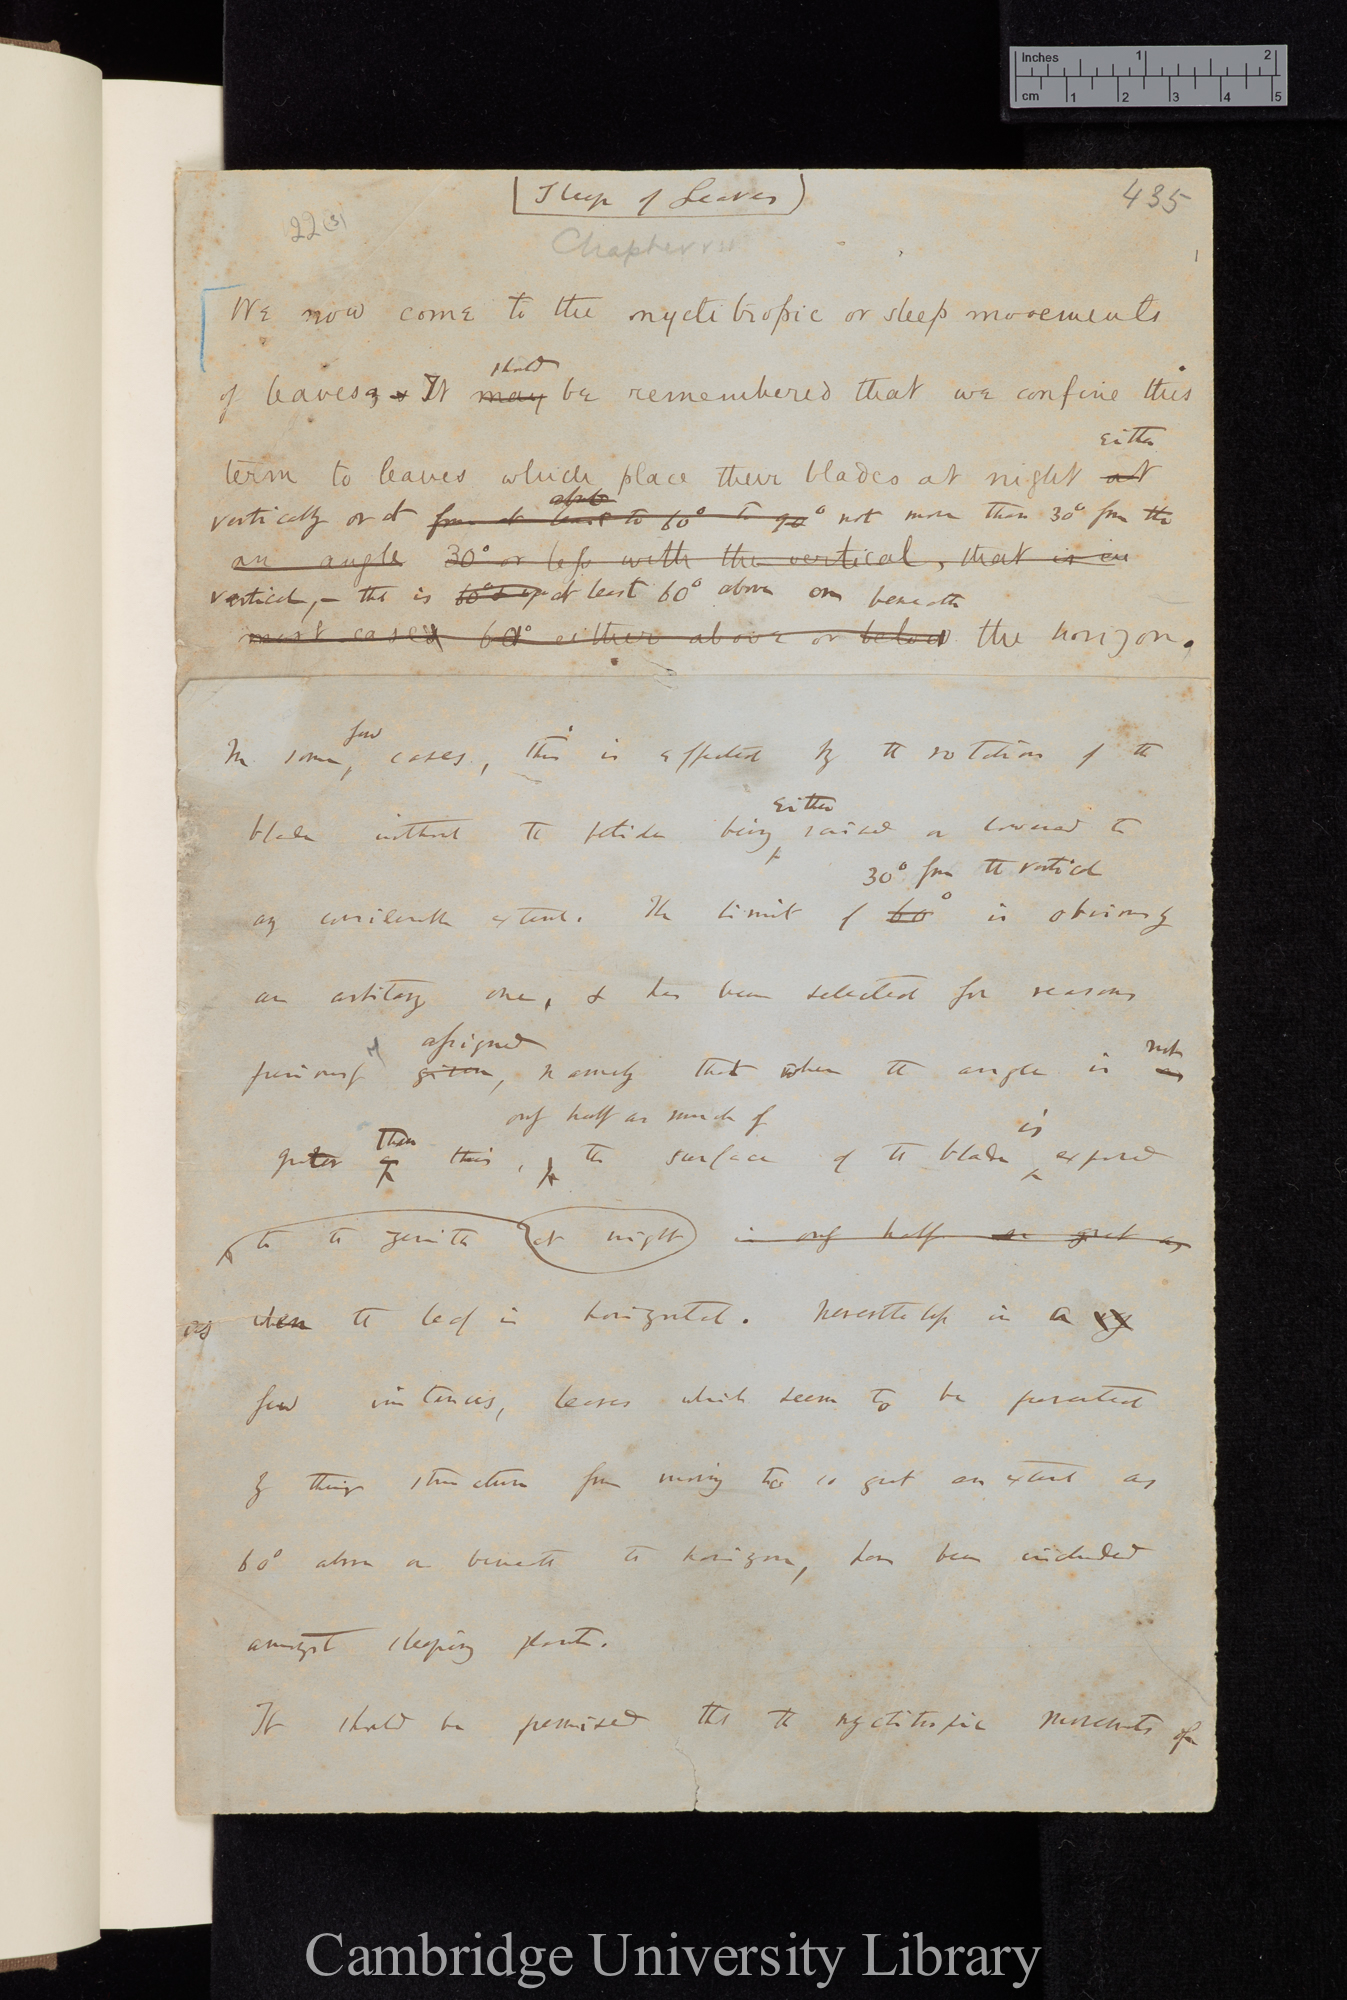 Inches 1 2
cm 1 2 3 4 5
(Sleep of Leaves)
435
22(3)
Chapter VII
We now come to the nyctitropic or sleep movements
should
of leaves, & It may be remembered that we confine this
either
term to leaves which place their blades at night at
vertically or at from at least to 60° to 90° not more than 30° from the
an angle 30° or less with the vertical, that is in
vertical, – that is at least 60° above or beneath
most cases 60° either above or below the horizon.
few
In some, cases, this is effected by the rotation of the
either
blade without the petiole being raised or lowered to
30° from the vertical
any considerable extent. The limit of 60° is obviously
an arbitrary one, & has been selected for reasons
assigned
not
previously given, namely that when the angle is as
only half as much of
than
is
greater this, the surface of the blade exposed
to the zenith at night is only half as great as
as when the leaf is horizontal. Nevertheless in a
few instances, leaves which seem to be prevented
by their structure from moving to so great an extent as
60° above or beneath the horizon, have been included
amongst sleeping plants.
It should be premised that the nyctitropic movements of
Cambridge University Library